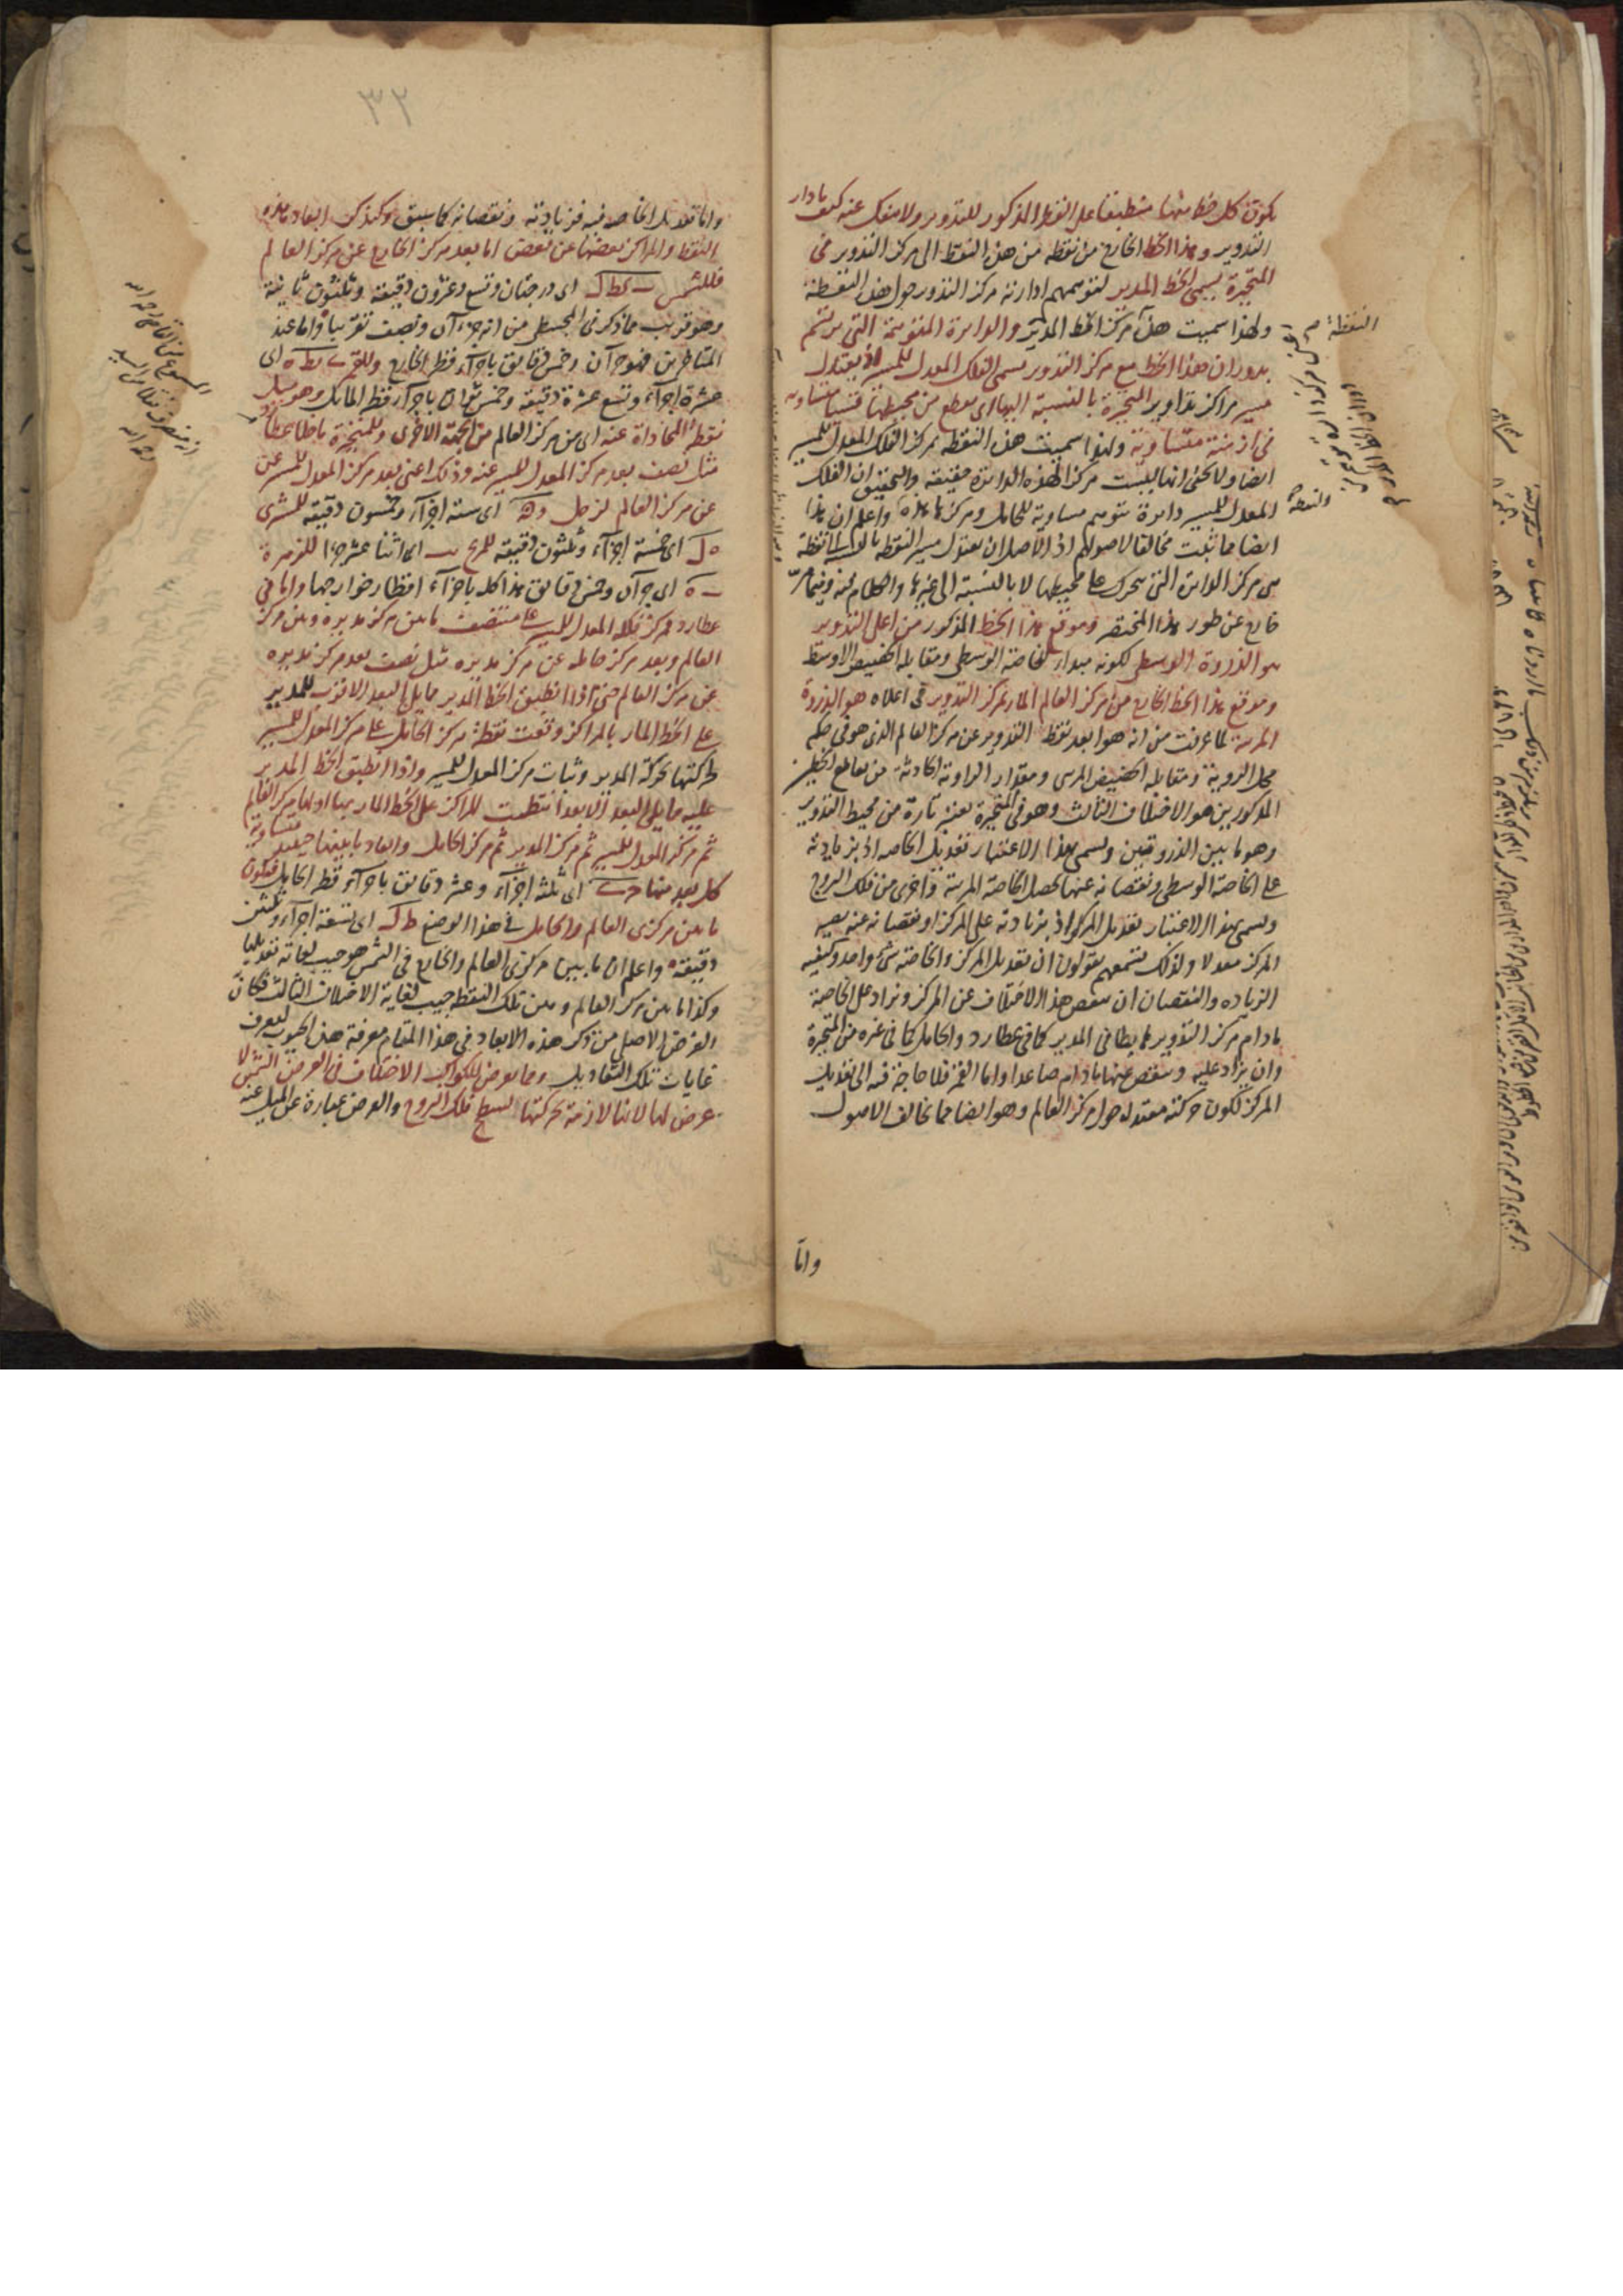 يكون كل خط منها منطبقا على القطر المذكور للتدوير ولا ينفك عنه كيف ما دار
التدوير وهذا الخط الخارج من نقطة من هذه النقط الى مركز التدوير في
المتحيرة يسمى الخط المدير لتوهمهم ادارته مركز التدوير حول هذه النقطة
ولهذا سميت هذه مركز الخط المدير والدائرة المتوهمة التي ترتسم
بدوران هذا الخط مع مركز التدوير يسمى الفلك المعدل للمسير اذ يعتدل
مسير مراكز تداوير المتحيرة بالنسبة اليها اى يقطع من محيطها قسيا متساوية
في ازمنة متساوية ولهذا سميت هذه النقطة مركز الفلك المعدل للمسير
ايضا ولا يخفى انها ليست مركزا لهذه الدائرة حقيقة والتحقيق ان الفلك
المعدل للمسير دائرة تتوهم مساوية للحامل ومركزها هذه واعلم ان هذا
ايضا مما يثبت مخالفا لاصولهم اذ الاصل ان يعتدل مسير النقطة بالقياس الى نقطة
هى مركز الدائرة التي تتحرك على محيطها لا بالنسبة الى غيرها والكلام فيه وفيما مر
خارج عن طور هذا المختصر وموقع هذا الخط المذكور من اعلى التدوير
هو الذروة الوسطى لكونه مبدأ للخاصة الوسطى ومقابله الحضيض الاوسط
وموقع هذا الخط الخارج من مركز العالم المار بمركز التدوير في اعلاه هو الذروة
المرئية لما عرفت من انه هو ابعد نقط التدوير عن مركز العالم الذى هو في حكم
محل الرؤية ومقابله الحضيض المرئى ومقدار الزاوية الحادثة من تقاطع الخطين
المذكورين هو الاختلاف الثالث وهو في المتحيرة يعتبر تارة من محيط التدوير
وهو ما بين الذروتين ويسمى بهذا الاعتبار تعديل الخاصة اذ بزيادته
على الخاصة الوسطى ونقصانه عنها تحصل الخاصة المرئية واخرى من فلك البروج
ويسمى بهذا الاعتبار تعديل المركز اذ بزيادته على المركز او نقصانه عنه يصير
المركز معدلا ولذلك تسمعهم يقولون ان تعديل المركز والخاصة شئ واحد وكيفية
الزيادة والنقصان ان ينقص هذا الاختلاف عن المركز ويزاد على الخاصة
ما دام مركز التدوير هابطا في المدير كما في عطارد والحامل كما في غيره من المتحيرة
وان يزاد عليه وينقص عنها ما دام صاعدا واما القمر فلا حاجة فيه الى تعديل
المركز لكون حركته معتدلة حول مركز العالم وهو ايضا مما يخالف الاصول
واما
النقطة
والنقطة
٣٢
واما تعديل الخاصة فيه فزيادته ونقصانه كما سبق وكذلك ابعاد هذه
النقط والمراكز بعضها عن بعض اما بعد مركز الخارج عن مركز العالم
فللشمس ب كط ل اى درجتان وتسع وعشرون دقيقة وثلثون ثانية
وهو قريب مما ذكر في المجسطى من انه جزءآن ونصف تقريبا واما عند
المتاخرين فهو جزءآن وخمس دقايق باجزآء قطر الخارج وللقمر ى يط ه اى
عشرة اجزآء وتسع عشرة دقيقة وخمس ثوان باجزآء قطر المائل وهو مثل
نقطة المحاذاة عنه اى من مركز العالم من الجهة الاخرى وللمتحيرة ما خلا عطارد
مثل نصف بعد مركز المعدل للمسير عنه وذلك اعنى بعد مركز المعدل للمسير عن
عن مركز العالم لزحل و ن اى ستة اجزآء وخمسون دقيقة للمشترى
ه ل اى خمسة اجزآء وثلثون دقيقة للمريخ يب اى اثنا عشر جزءا للزهرة
ب ه اى جزءآن وخمس دقايق هذا كله باجزآء اقطار خوارجها واما في
عطارد فمركز فلكه المعدل للمسير على منتصف ما بين مركز مديره وبين مركز
العالم وبعد مركز حامله عن مركز مديره مثل نصف بعد مركز مديره
عن مركز العالم حتى اذا انطبق الخط المدير مما يلى البعد الاقرب للمدير
على الخط المار بالمراكز وقعت نقطة مركز الحامل على مركز المعدل للمسير
لحركتها بحركة المدير وثبات مركز المعدل للمسير واذا انطبق الخط المدير
عليه مما يلى البعد الابعد انتظمت المراكز على الخط المار بها اولها مركز العالم
ثم مركز المعدل للمسير ثم مركز المدير ثم مركز الحامل وابعاد ما بينها حينئذ متساوية
كل بعد منها ج ى اى ثلثة اجزآء وعشر دقايق باجزآء قطر الحامل فيكون
ما بين مركزى العالم والحامل في هذا الوضع ط ل اى تسعة اجزآء وثلثين
دقيقة واعلم ان ما بين مركزى العالم والخارج في الشمس هو جيب لغاية تعديلها
وكذا ما بين مركز العالم وبين تلك النقط جيب لغاية الاختلاف الثالث فكان
الغرض الاصلى من ذكر هذه الابعاد في هذا المقام معرفة هذه الجيوب ليعرف
غايات تلك التعاديل ومما يعرض للكواكب الاختلاف في العرض الشمس لا
عرض لها لانها لازمة بحركتها لسطح فلك البروج والعرض عبارة عن الميل عنه